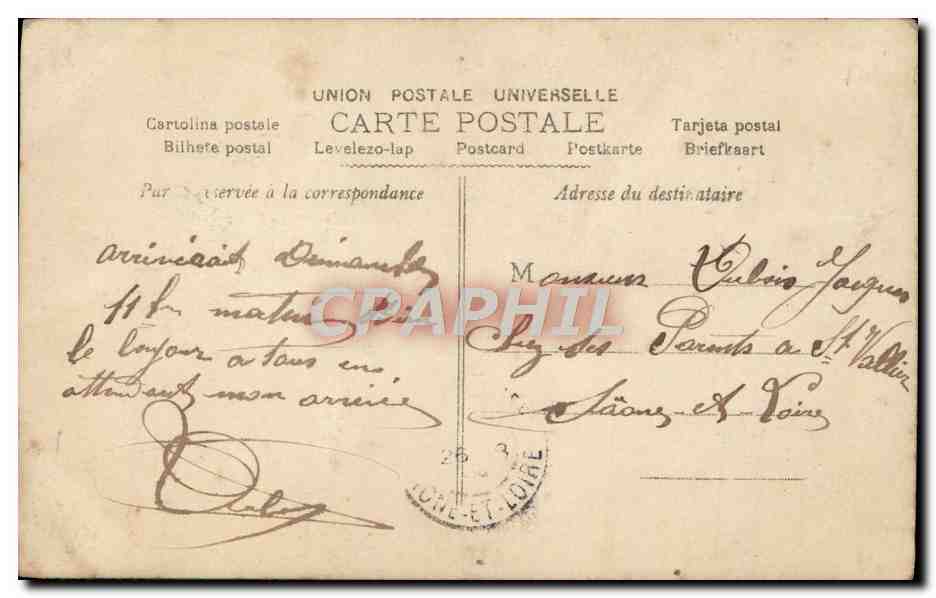 UNION POSTALE UNIVERSELLE
CARTE POSTALE
Cartolina postale
Tarjeta postal
Bilhete postal
Levelezo-lap
Postcard
Postkarte
Briefkaart
Par réservée à la correspondance
Adresse du destinataire
arriverait Dimanche
11 h matin
le bonjour a tous en
attendant mon arrivée
Dubois
Monsieur Dubois Jacques
Chez ses Parents a St Vallier
Saône et Loire
26 3
ONE-ET-LOIRE
CPARHIL